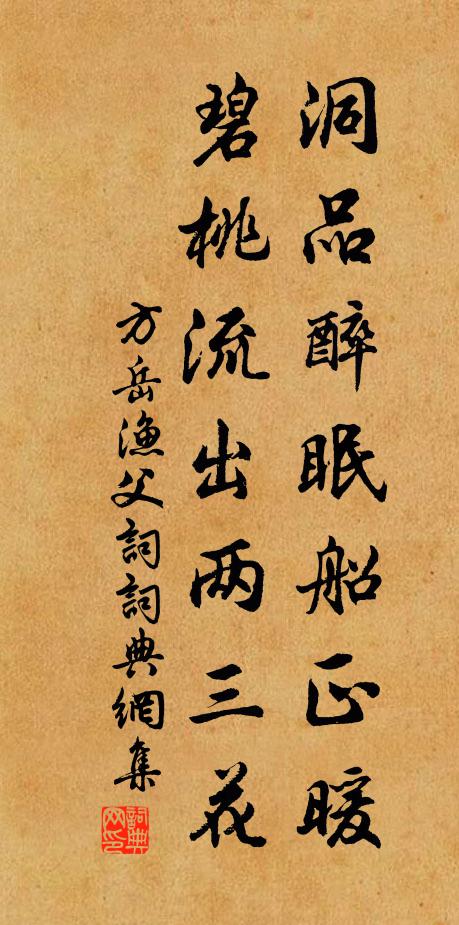 洞品醉眠船正暖
碧桃流出两三花
方岳漁父詞詞典網集
詞典网印